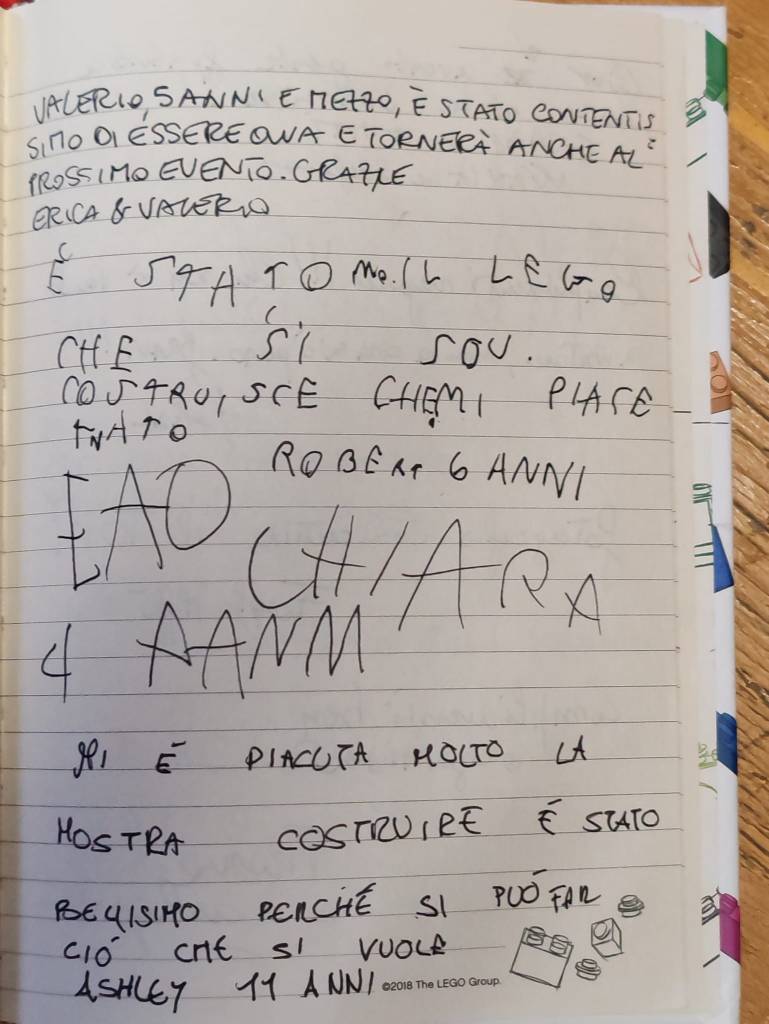 VALERIO, 5 ANNI E MEZZO, È STATO CONTENTIS
SIMO DI ESSERE QUA E TORNERÀ ANCHE AL
PROSSIMO EVENTO. GRAZIE
ERICA & VALERIO
È STATO IL LEGO
CHE SI SOU.
COSTRUISCE CHE MI PIACE
ROBERT 6 ANNI
CHIARA
4 AANM
MI È PIACUTA MOLTO LA
MOSTRA COSTRUIRE É STATO
BELISIMO PERCHÉ SI PUÓ FAR
CIÓ CHE SI VUOLE
ASHLEY 11 ANNI ©2018 The LEGO Group.